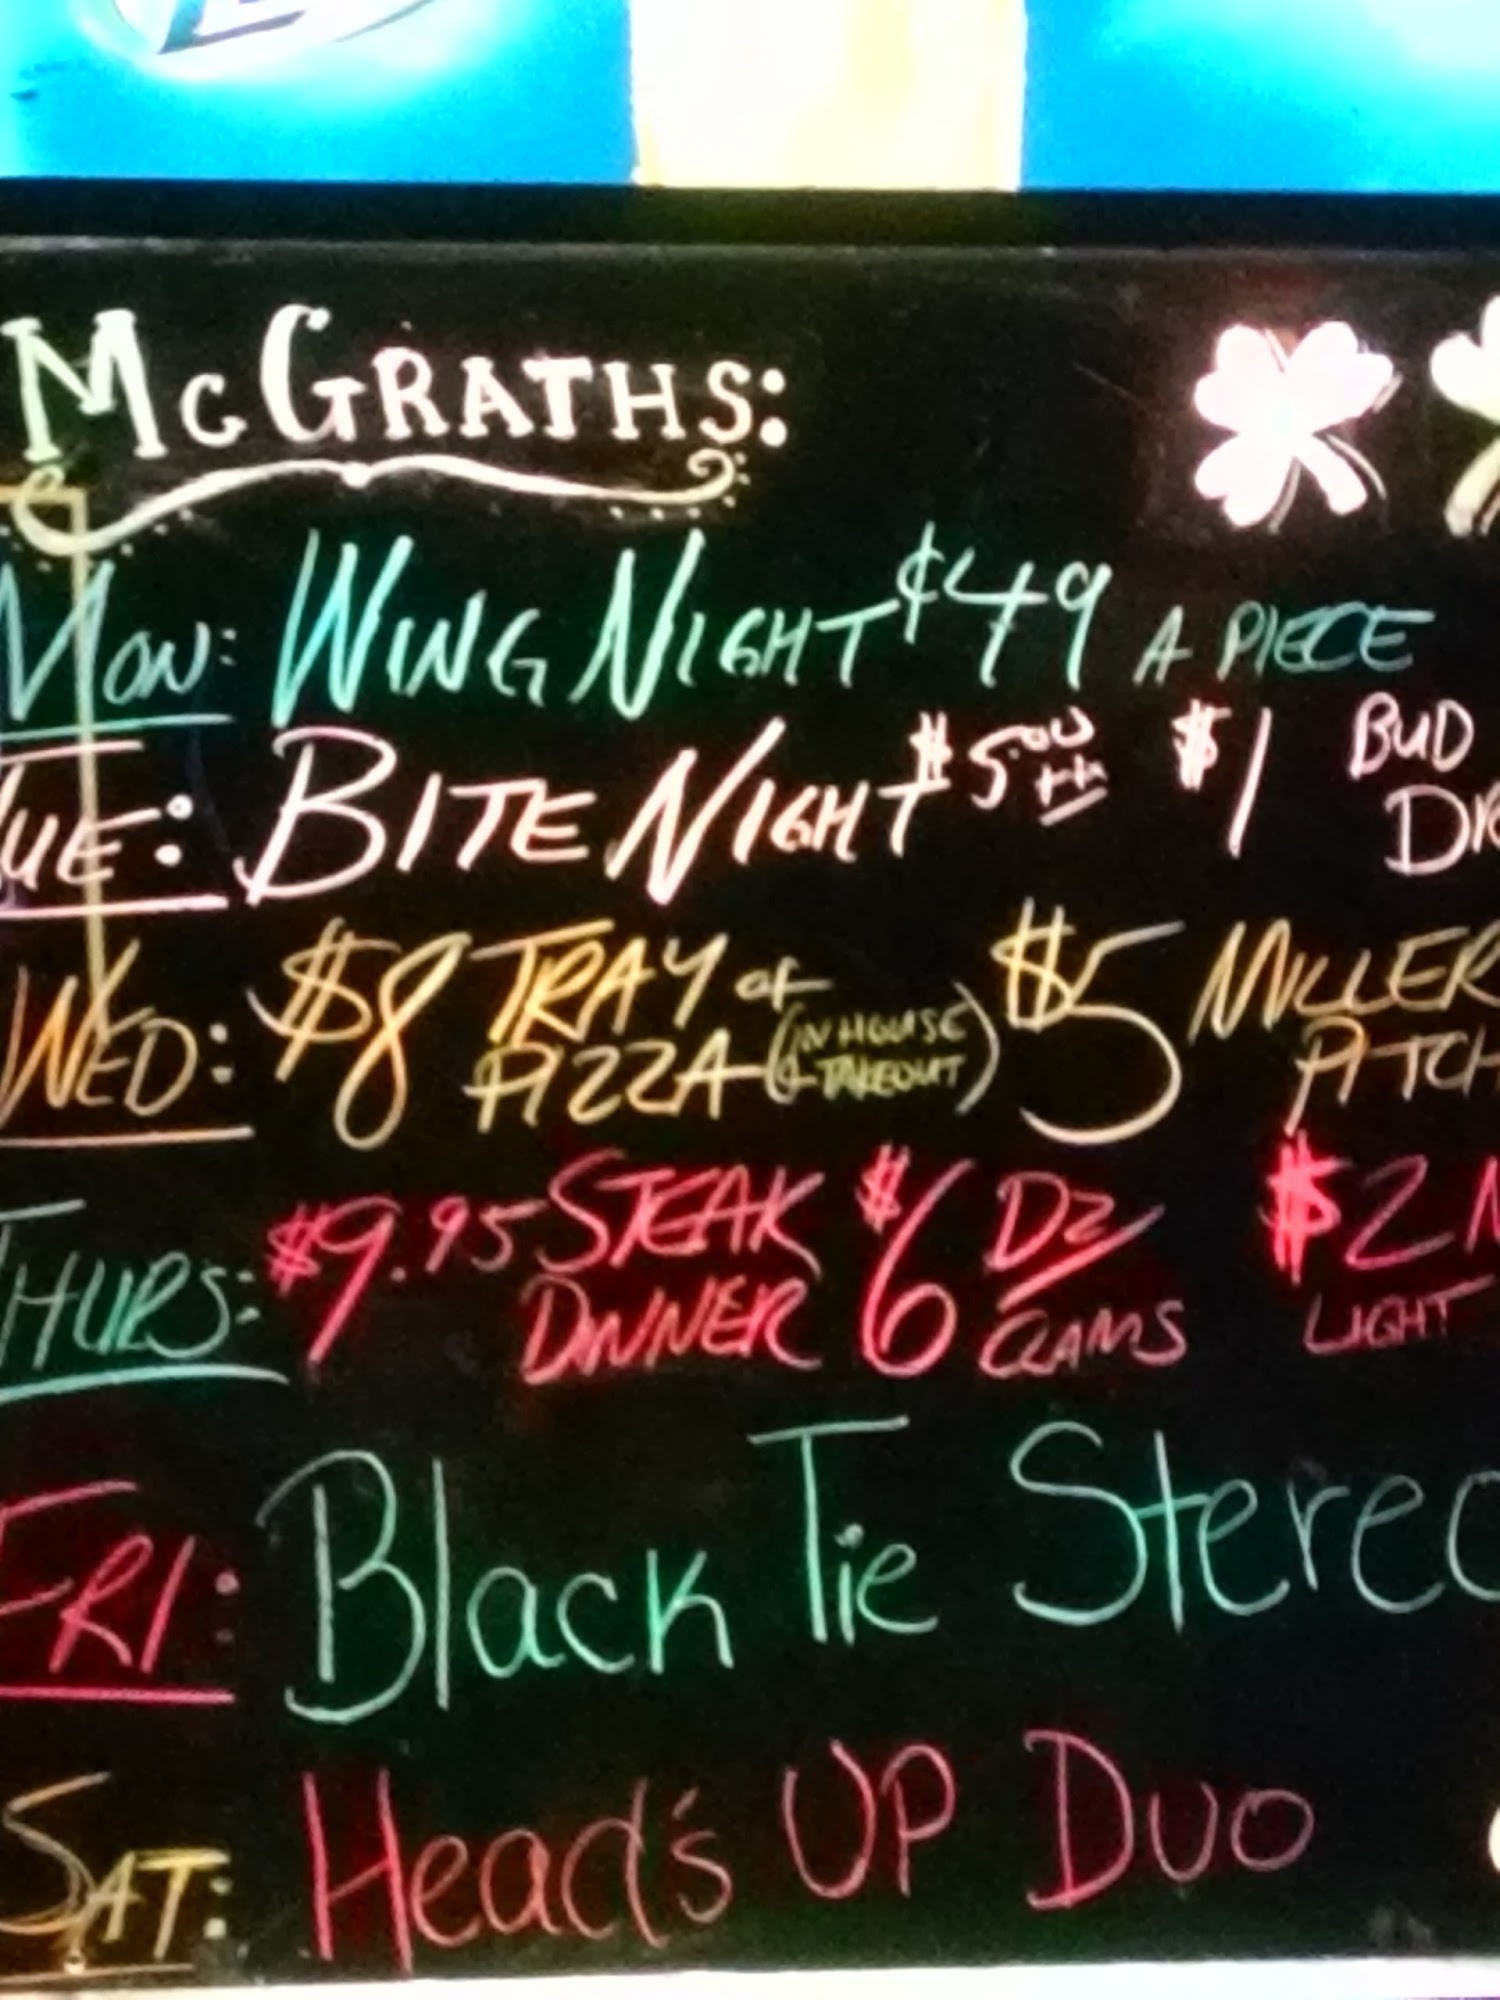 McGRATHS:
MON: WING NIGHT ¢49 A PIECE
TUE: BITE NIGHT $5.00 $1 BUD
WED: $8 TRAY of PIZZA (IN HOUSE & TAKEOUT) $5 MILLER
THURS: $9.95 STEAK DINNER $6 DZ CLAMS $2
LIGHT
FRI: Black Tie Stereo
SAT: Head's UP DUO